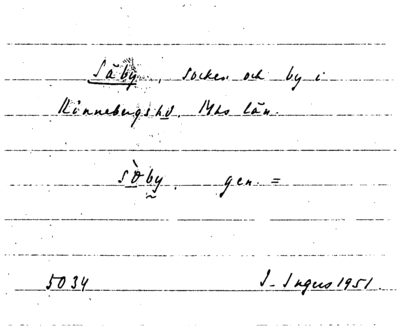 Säby, socken och by i
Rönnebergs hd. Mhs län.
sò̱by. gen. =
5034 I. Ingers 1951.